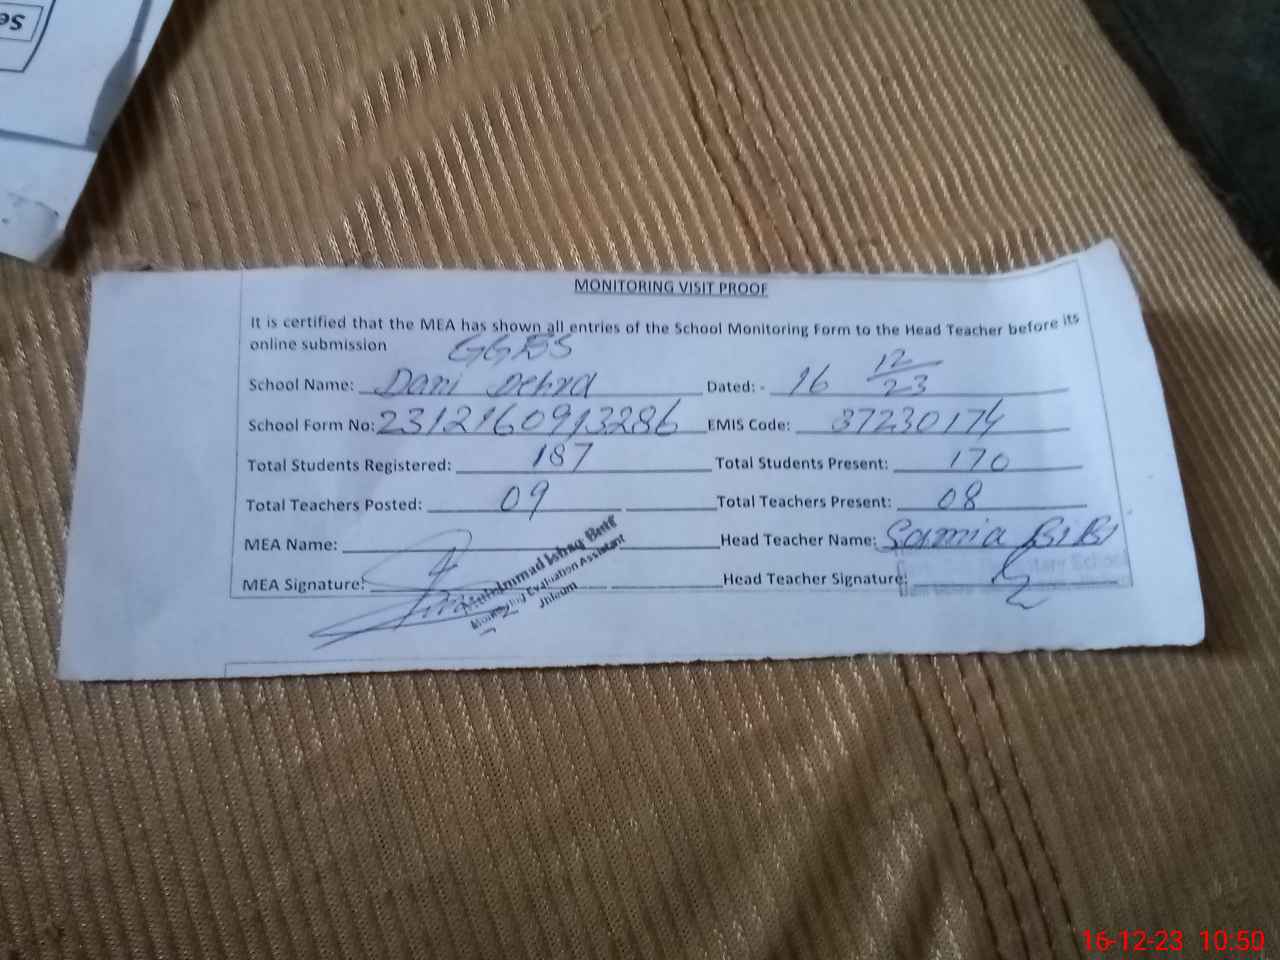 Se
MONITORING VISIT PROOF
It is certified that the MEA has shown all entries of the School Monitoring Form to the Head Teacher before its
online submission
GGES
School Name: Dani Dehra Dated: - 16 12/23
School Form No: 2312160913286 EMIS Code: 37230174
Total Students Registered: 187 Total Students Present: 170
Total Teachers Posted: 09 Total Teachers Present: 08
MEA Name: Head Teacher Name: Samia BiBi
MEA Signature: Head Teacher Signature:
Muhammad Ishaq Butt
Monitoring Evaluation Assistant
Jhleum
16-12-23 10:50